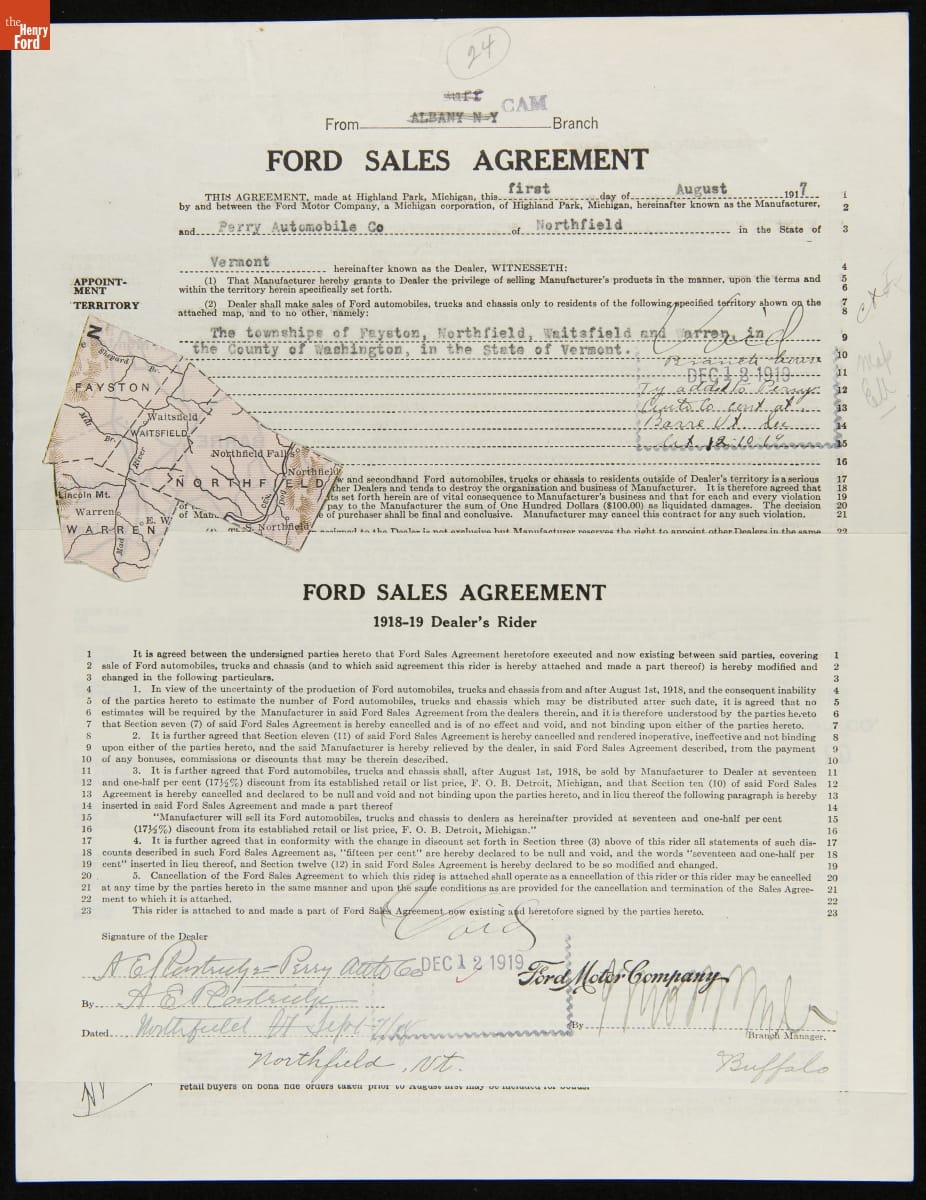 the
Henry
Ford
24
CAM
From ALBANY N Y Branch
FORD SALES AGREEMENT
THIS AGREEMENT, made at Highland Park, Michigan, this first day of August 1917 1
by and between the Ford Motor Company, a Michigan corporation, of Highland Park, Michigan, hereinafter known as the Manufacturer, 2
and Perry Automobile Co of Northfield in the State of 3
Vermont hereinafter known as the Dealer, WITNESSETH: 4
APPOINT-
MENT
(1) That Manufacturer hereby grants to Dealer the privilege of selling Manufacturer's products in the manner, upon the terms and 5
within the territory herein specifically set forth. 6
TERRITORY
(2) Dealer shall make sales of Ford automobiles, trucks and chassis only to residents of the following specified territory shown on the 7
attached map, and to no other, namely: 8
The townships of Fayston, Northfield, Waitsfield and Warren, in 9
the County of Washington, in the State of Vermont. 10
Void
Branch house
DEC 12 1919 11
Ty added to Perry 12
Auto Co cent at 13
Barre Vt. See 14
Cct 12/10/19 15
16
Map
N
Shepard Br.
FAYSTON
Waitsfield
WAITSFIELD
Mill Br.
River
Northfield Falls
Northfield
NORTHFIELD
Lincoln Mt.
Warren
E. W.
WARREN
Mad
Dog
S. Northfield
w and secondhand Ford automobiles, trucks or chassis to residents outside of Dealer's territory is a serious 17
her Dealers and tends to destroy the organization and business of Manufacturer. It is therefore agreed that 18
ts set forth herein are of vital consequence to Manufacturer's business and that for each and every violation 19
pay to the Manufacturer the sum of One Hundred Dollars ($100.00) as liquidated damages. The decision 20
of Man e of purchaser shall be final and conclusive. Manufacturer may cancel this contract for any such violation. 21
assigned to the Dealer is not exclusive but Manufacturer reserves the right to appoint other Dealers in the same 22
FORD SALES AGREEMENT
1918-19 Dealer's Rider
1 It is agreed between the undersigned parties hereto that Ford Sales Agreement heretofore executed and now existing between said parties, covering 1
2 sale of Ford automobiles, trucks and chassis (and to which said agreement this rider is hereby attached and made a part thereof) is hereby modified and 2
3 changed in the following particulars. 3
4 1. In view of the uncertainty of the production of Ford automobiles, trucks and chassis from and after August 1st, 1918, and the consequent inability 4
5 of the parties hereto to estimate the number of Ford automobiles, trucks and chassis which may be distributed after such date, it is agreed that no 5
6 estimates will be required by the Manufacturer in said Ford Sales Agreement from the dealers therein, and it is therefore understood by the parties hereto 6
7 that Section seven (7) of said Ford Sales Agreement is hereby cancelled and is of no effect and void, and not binding upon either of the parties hereto. 7
8 2. It is further agreed that Section eleven (11) of said Ford Sales Agreement is hereby cancelled and rendered inoperative, ineffective and not binding 8
9 upon either of the parties hereto, and the said Manufacturer is hereby relieved by the dealer, in said Ford Sales Agreement described, from the payment 9
10 of any bonuses, commissions or discounts that may be therein described. 10
11 3. It is further agreed that Ford automobiles, trucks and chassis shall, after August 1st, 1918, be sold by Manufacturer to Dealer at seventeen 11
12 and one-half per cent (17½%) discount from its established retail or list price, F. O. B. Detroit, Michigan, and that Section ten (10) of said Ford Sales 12
13 Agreement is hereby cancelled and declared to be null and void and not binding upon the parties hereto, and in lieu thereof the following paragraph is hereby 13
14 inserted in said Ford Sales Agreement and made a part thereof 14
15 "Manufacturer will sell its Ford automobiles, trucks and chassis to dealers as hereinafter provided at seventeen and one-half per cent 15
16 (17½%) discount from its established retail or list price, F. O. B. Detroit, Michigan." 16
17 4. It is further agreed that in conformity with the change in discount set forth in Section three (3) above of this rider all statements of such dis- 17
18 counts described in such Ford Sales Agreement as, "fifteen per cent" are hereby declared to be null and void, and the words "seventeen and one-half per 18
19 cent" inserted in lieu thereof, and Section twelve (12) in said Ford Sales Agreement is hereby declared to be so modified and changed. 19
20 5. Cancellation of the Ford Sales Agreement to which this rider is attached shall operate as a cancellation of this rider or this rider may be cancelled 20
21 at any time by the parties hereto in the same manner and upon the same conditions as are provided for the cancellation and termination of the Sales Agree- 21
22 ment to which it is attached. 22
23 This rider is attached to and made a part of Ford Sales Agreement now existing and heretofore signed by the parties hereto. 23
Void
Signature of the Dealer
A E Partridge = Perry Auto Co DEC 12 1919
Ford Motor Company
By A E Partridge
Dated Northfield Vt Sept By
Branch Manager.
Northfield, Vt. Buffalo
NY
retail buyers on bona fide orders taken prior to August first may be included for bonus.